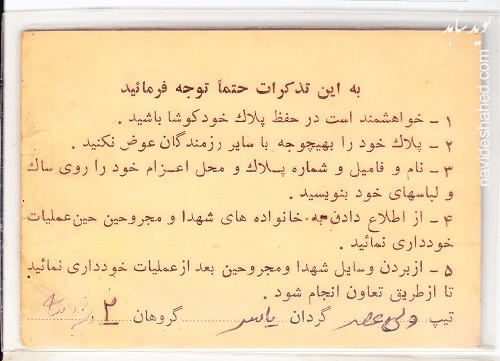 نوید شاهد
navideshahed.com
به این تذکرات حتماً توجه فرمائید
۱ – خواهشمند است در حفظ پلاك خودکوشا باشید .
۲ – پلاك خود را بهیچوجه با سایر رزمندگان عوض نکنید .
۳ – نام و فامیل و شماره پلاك و محل اعزام خود را روی ساك
و لباسهای خود بنویسید .
۴ – از اطلاع دادن به خانواده های شهدا و مجروحین حین عملیات
خودداری نمائید .
۵ – ازبردن وسایل شهدا ومجروحین بعد ازعملیات خودداری نمائید
تا ازطریق تعاون انجام شود .
تیپ ولی عصر گردان یاسر گروهان ۲